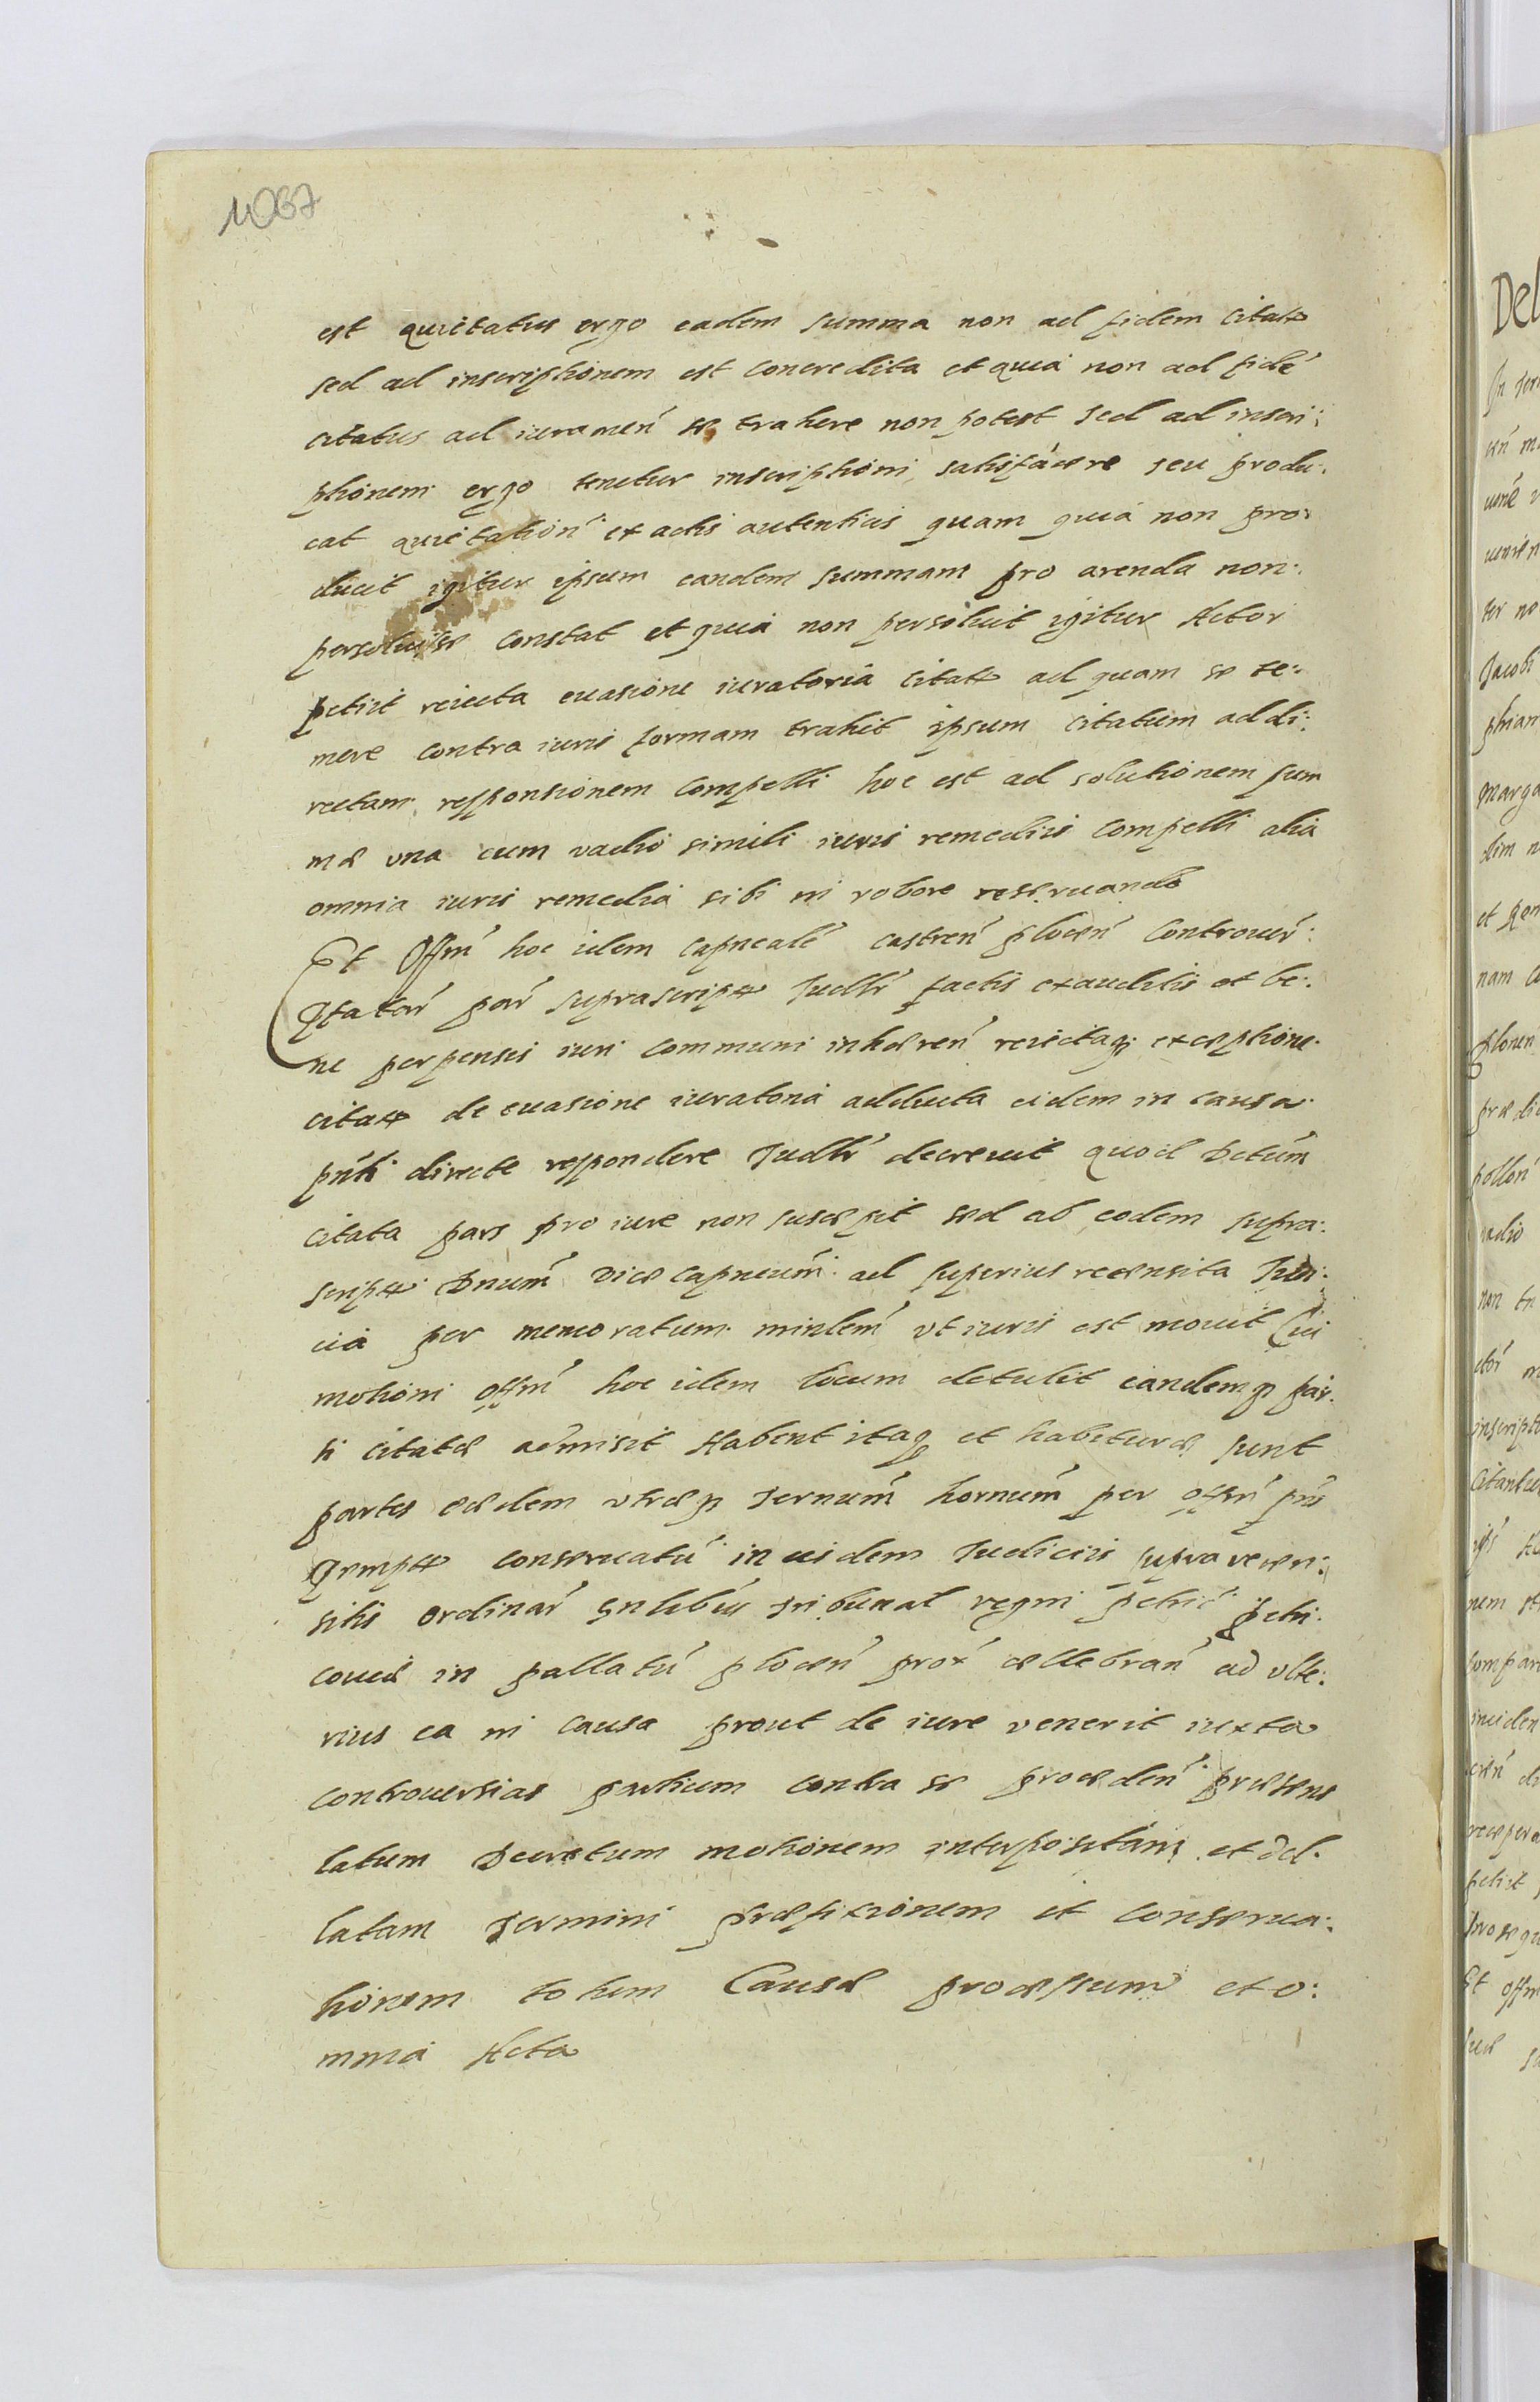 1067
est quietatus ergo eadem summa non ad fidem citat
sed ad inscriptionem est concredita et quia non ad fidé
citatus ad iuramen se trahere non potest sed ad inscri:
ptionem ergo tenetur inscriptioni satisfacere seu produ:
cat quietation ex actis autenticis quam quia non pro:
ducit igitur ipsum eandem summam pro arenda non:
persoluisse constat et quia non persoluit igitur Actor
petiit reiecta euasione iuratoria citat ad quam se te:
mere contra iuris formam trahit ipsum citatum ad di:
rectam responsionem compelli hoc est ad solutionem sum
mæ vna cum vadio simili iuris remediis compelli alia
omnia iuris remedia sibi in robore reseruando
Et Offm hoc idem capneale castren plocen controuer:
par suprascript Judtr factis exauditis et be:
ne perpensis iuri communi inhæren reiectaq exceptione
citat de euasione iuratoria adducta eidem in causa
pnti directe respondere Judtr decreuit quod Dctum
citata pars pro iure non suscepit sed ab eodem supra:
script Dnum vice capneum ad superius recensita Judi:
cia per memoratum minlem vt iuris est mouit Cui
motioni offm hoc idem locum detulit eandemq par:
ti citatæ admisit Habent itaq et habituræ sunt
partes eædem vtræq Ternum hornum per offm pns
conseruatu in eisdem Judiciis supra recen:
sitis ordinar gnlibus tribunal regni petric petri:
couiæ in pallatu plocen prox cellebran ad vlte:
rius ea in causa prout de iure venerit iuxta
controuersias partium contra se proceden præsens
latum Decretum motionem interpositam et del:
latam Termini præfixionem et conserua:
tionem totum Causæ processum et o:
mnia Acta